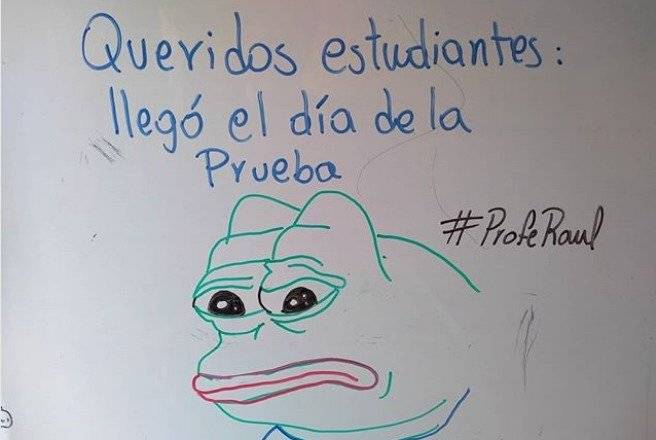 Queridos estudiantes:
llegó el día de la
Prueba
#ProfeRaul